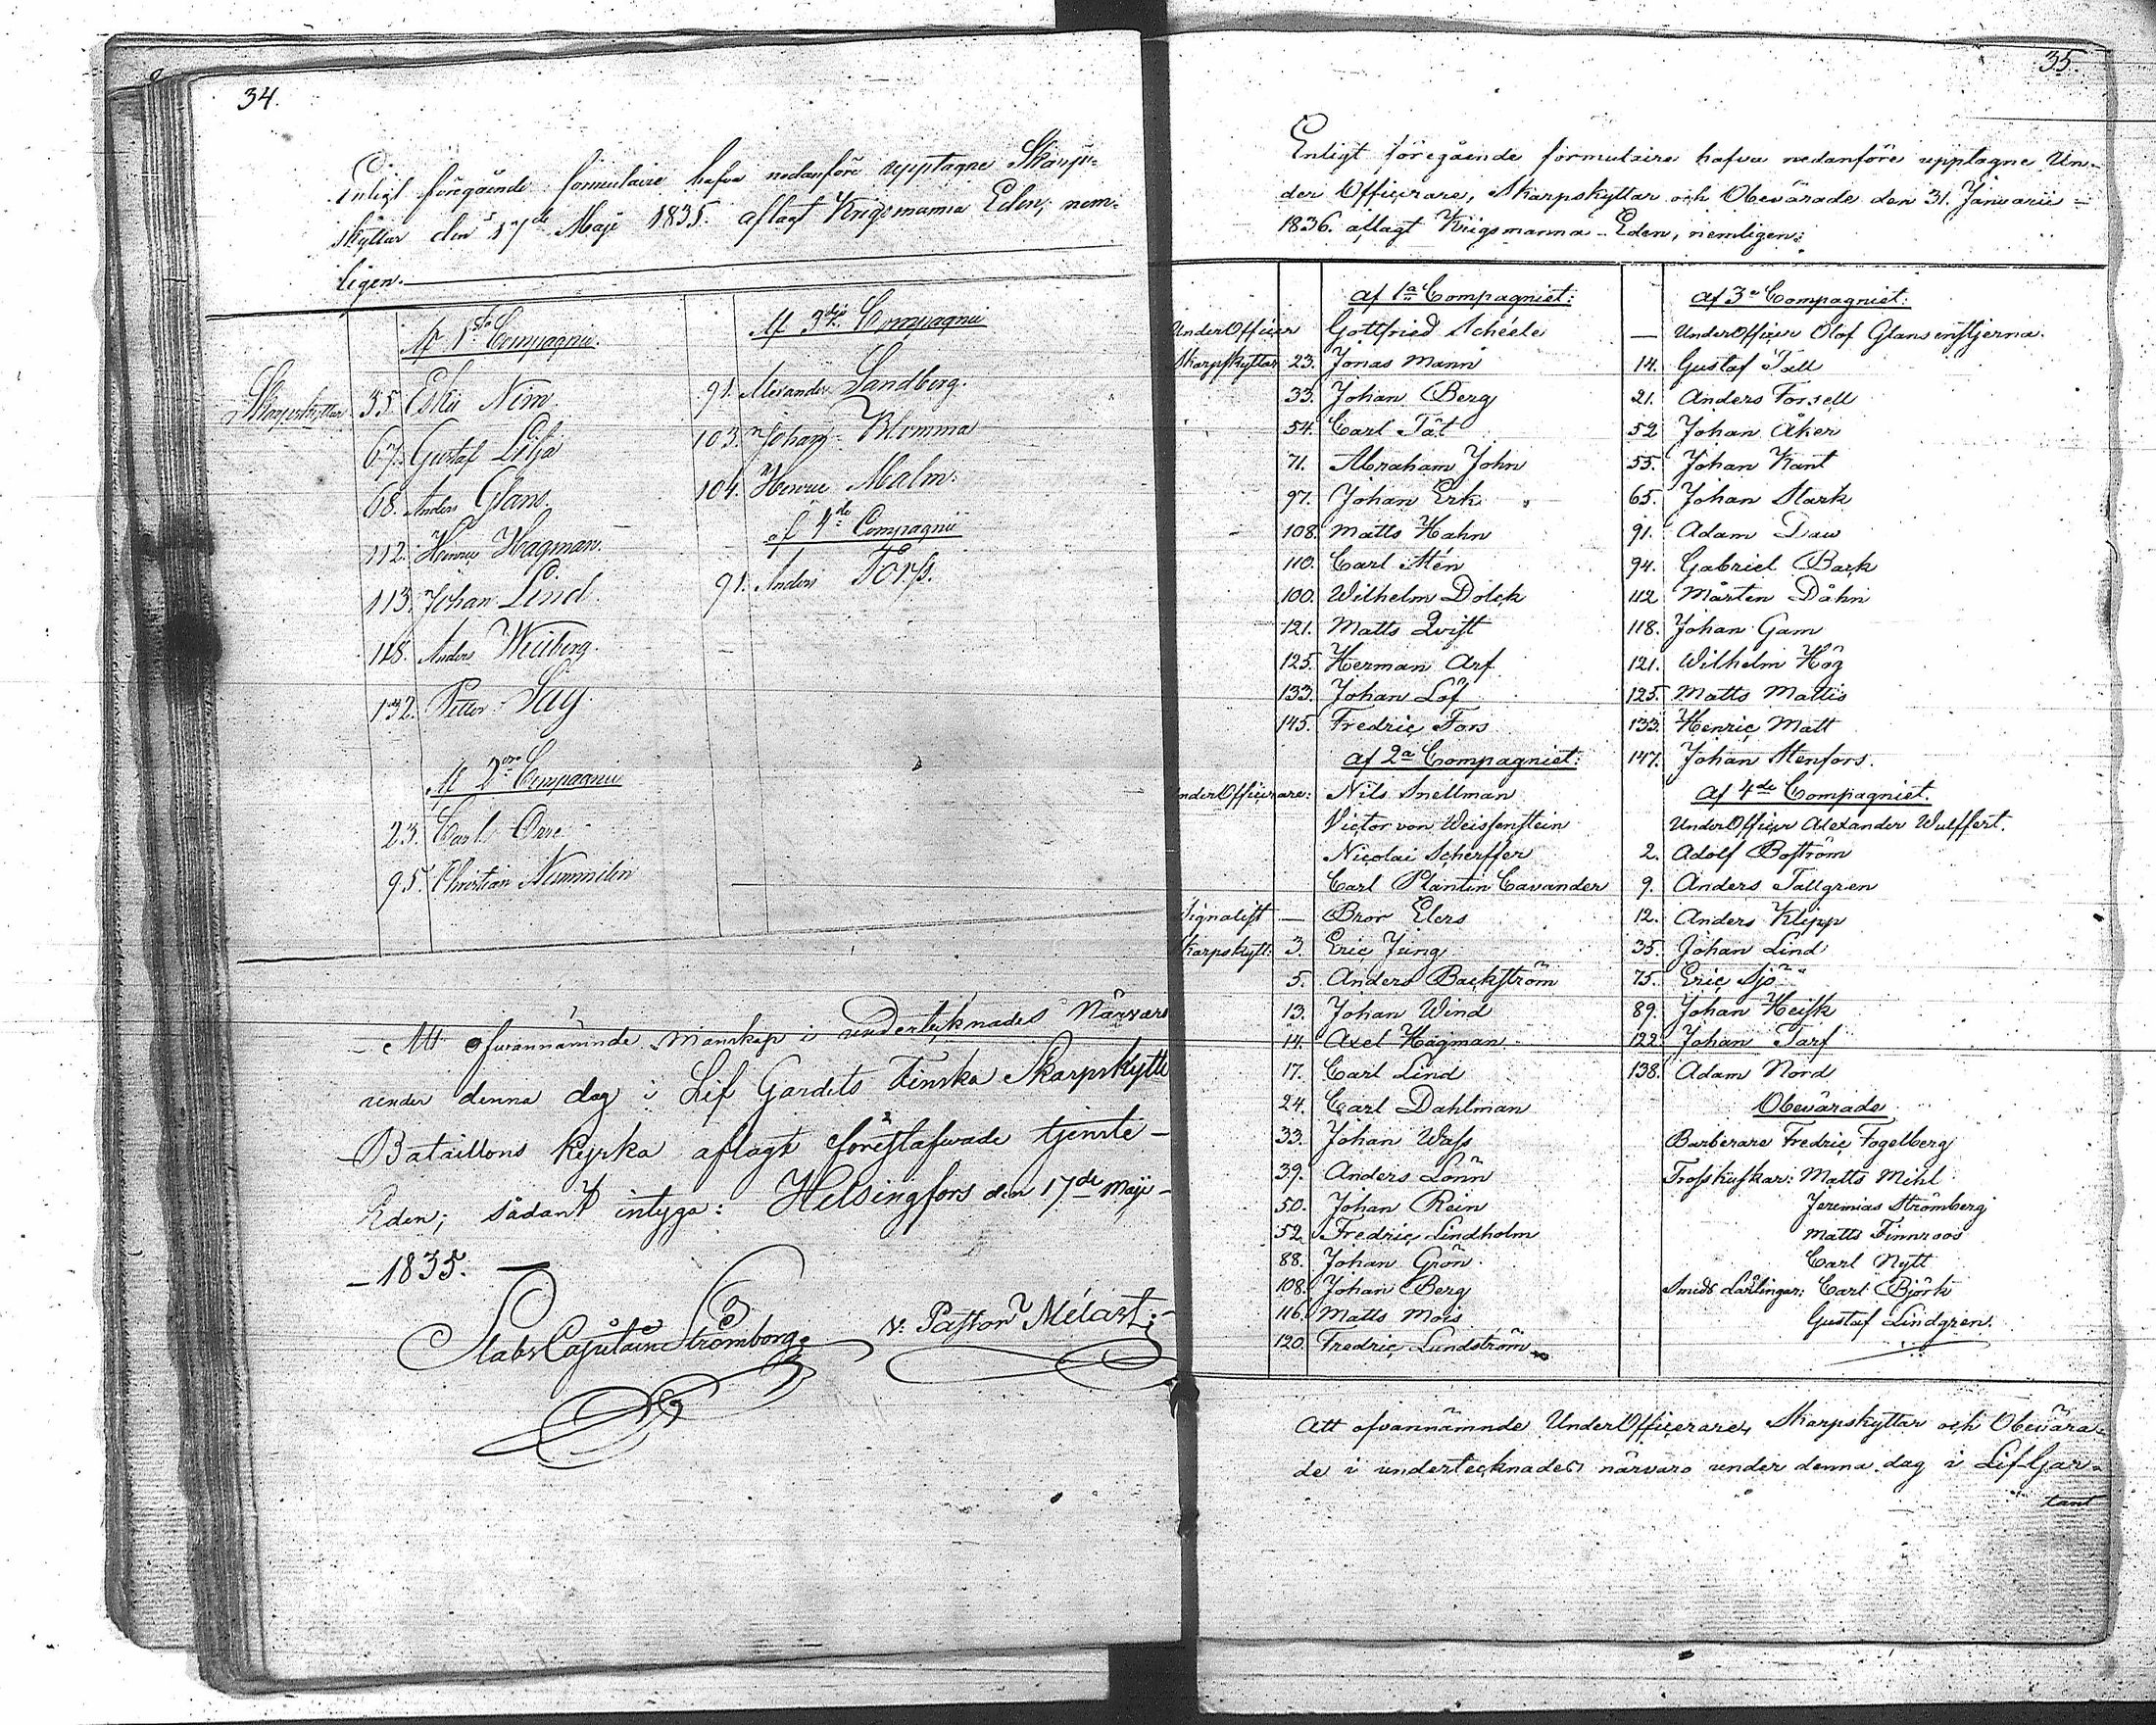 34.
Enligt föregående formulaire hafva nedanföre upptagne Skarp-
skyttar den 17de Maji 1835. aflagt Krigsmanna Eden; nem-
ligen.
Af 1sta Compagnie.
Skarpskyttar 35. Nim
67. Gustaf Lilja
68. Anders Glans.
112. Henric Hagman.
113. Johan Lind.
118. Anders Weiberg.
132. Petter
Af 2dra Compagnie
23. Carl Orre
95. Christian Nummelin
Af 3dje Compagnie
91. Alexander Sandberg.
103. Johan Blomma
104. Henric Malm.
af 4de Compagnie
91. Anders Förss.
Att ofwannämnde Manskap i undertecknades Närvaro
under denna dag i Lif Gardets Finska Skarpskytte
Bataillons kyrka aflagt förestafwade tjenste-
Eden; sådant intyga: Helsingfors den 17de Maji
1835.
StabsCapitaine Strömborg. v. Pastor Mélart.
35.
Enligt föregående formulaire hafva nedanföre upptagne Un-
der Officerare, Skarpskyttar och Obevärade den 31. Januarii
1836. aflagt Krigsmanna-Eden, nemligen:
Af 1a Compagniet:
UnderOfficer Gottfried Schéele
Skarpskyttar 23. Jonas Mann
33. Johan Berg
54. Carl Tät
71. Abraham John
97. Johan Erk
108. Matts Hahn
110. Carl Mén
100. Wilhelm Dolck
121. Matts Qvist
125. Herman Arf
133. Johan Löf
145. Fredric Fors
Af 2a Compagniet:
UnderOfficerare: Nils Snellman
Victor von Weissenstein
Nicolai Scherffer
Carl Plantin Cavander
Signalist — Bror Elers
Skarpskytt: 3. Eric Jung
5. Anders Backström
13. Johan Wind
14. Axel Hagman
17. Carl Lind
24. Carl Dahlman
33. Johan Wass
39. Anders Lönn
50. Johan Rein
52. Fredric Lindholm
88. Johan Grön
108. Johan Berg
116. Matts Mois
120. Fredric Lundström
Af 3e Compagniet:
— UnderOfficer Olof Glansenstjerna.
14. Gustaf Tall
21. Anders Forsell
52 Johan Åker
55. Johan Kant
65. Johan Stark
91. Adam Daw
94. Gabriel Back
112 Mårten Dåhn
118. Johan Gam
121. Wilhelm Hög
125. Matts Mattis
133. Henric Matt
147. Johan Stenfors.
Af 4de Compagniet.
UnderOfficer Alexander Wulffert.
2. Adolf Boström
9. Anders Tallgren
12. Anders Klipp
35. Johan Lind
75. Eric Sjö
89. Johan Heisk
122. Johan Tarf
138. Adam Nord
Obevärade
Barberare Fredric Fogelberg
Trosskuskar: Matts Mihl
Jeremias Strömberg
Matts Finnroos
Carl Nytt
Smeds Lärlingar: Carl Björk
Gustaf Lindgren.
Att ofvannämnde UnderOfficerare, Skarpskyttar och Obevära-
de i undertecknades närvaro under denna dag i Lif-Gar-